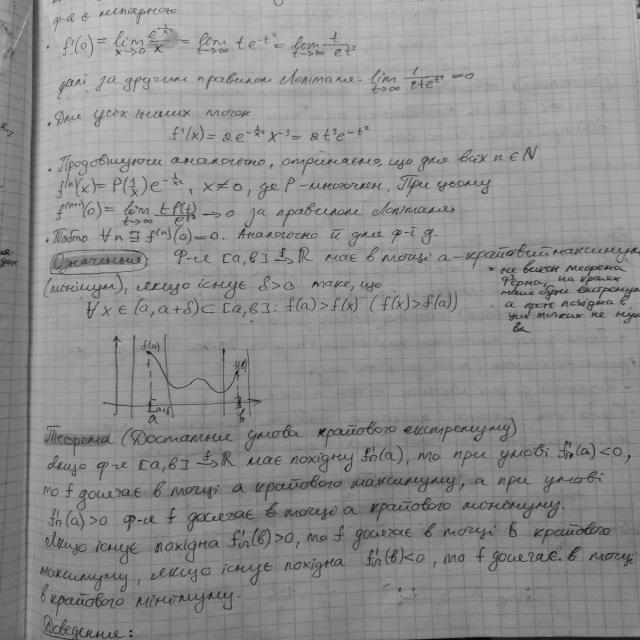 ф-я є непарною
• f'(0) = lim x→0 e^(-1/x²)/x = lim t→∞ t e^(-t²) = lim t→∞ t/e^(t²)
далі за другим правилом Лопіталя. lim t→∞ 1/(2te^(t²)) = 0
• Для усіх інших точок
f'(x) = 2e^(-1/x²) x^(-3) = 2t³e^(-t²)
• Продовжуючи аналогічно, отримаємо, що для всіх n ∈ N
f^(n)(x) = P(1/x) e^(-1/x²), x≠0, де P - многочлен. При цьому
f^(n+1)(0) = lim t→∞ tP(t)/e^(t²) → 0 за правилом Лопіталя.
• Тобто ∀n ∃ f^(n)(0) = 0. Аналогічно й для ф-ї g.
Означення Ф-я [a,b] f→ R має в точці a - крайовий максимум
(мінімум), якщо існує δ>0 таке, що
∀x ∈ (a, a+δ) ⊂ [a,b]: f(a) > f(x) (f(x) > f(a))
* не викон теорема
Ферма, на краях
може бути екстремум
а проте похідна в
цих точках не нульова
f(a)
f(b)
a+δ
a
b
Теорема (Достатня умова крайового екстремуму)
Якщо ф-я [a,b] f→ R має похідну f'п(a), то при умові f'п(a) < 0,
то f досягає в точці a крайового максимуму, а при умові
f'п(a) > 0 ф-я f досягає в точці a крайового мінімуму.
Якщо існує похідна f'л(b) > 0, то f досягає в точці b крайового
максимуму, якщо існує похідна f'л(b) < 0, то f досягає в точці
b крайового мінімуму.
Доведення: